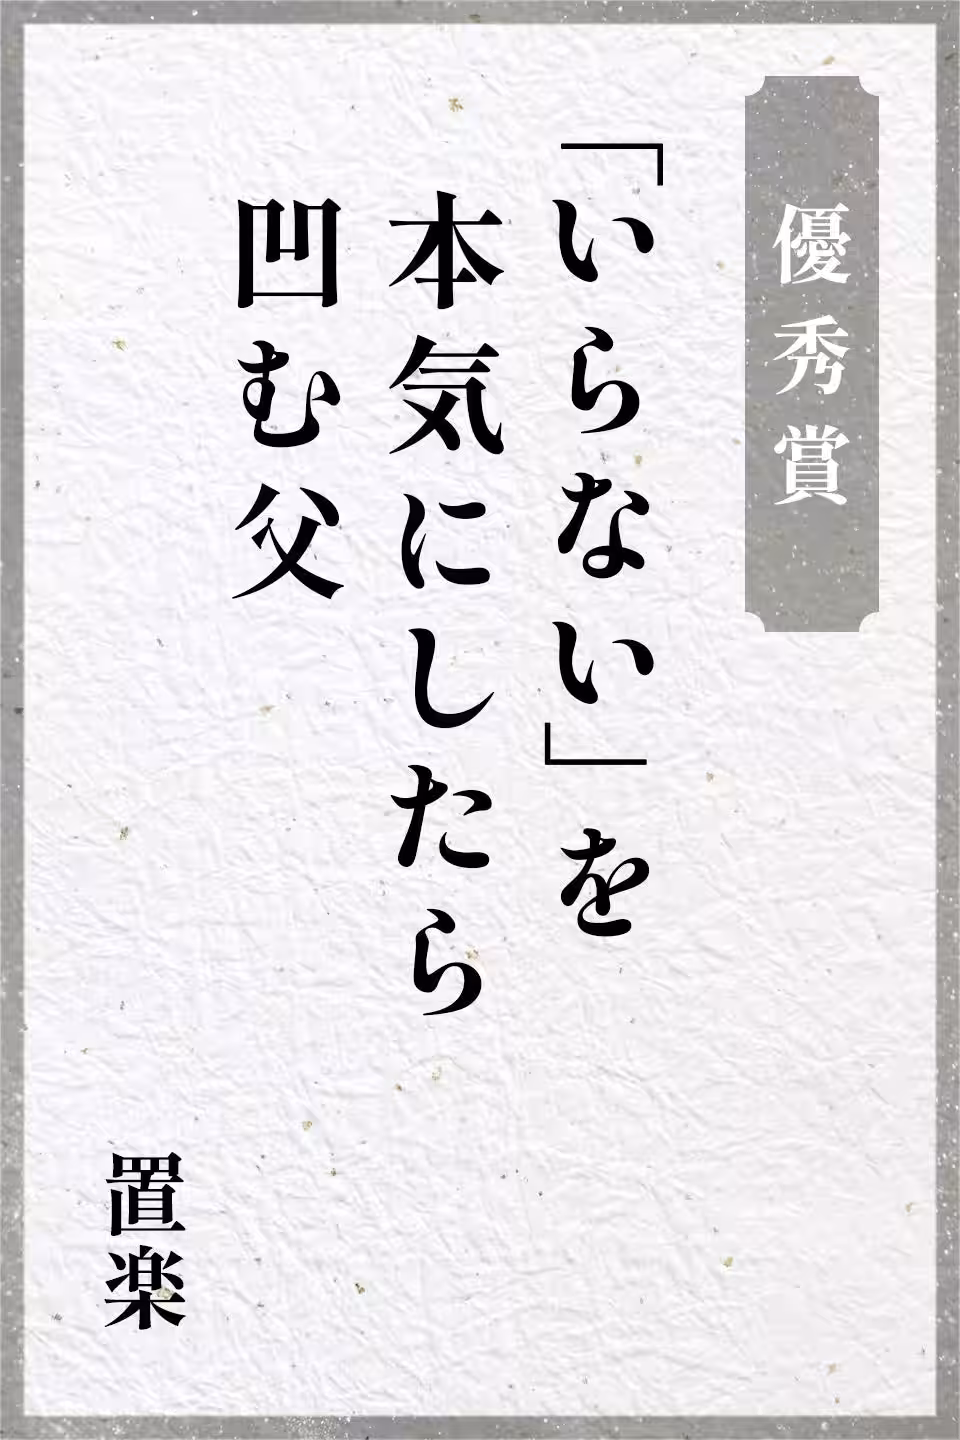 優秀賞
「いらない」を
本気にしたら
凹む父
置楽